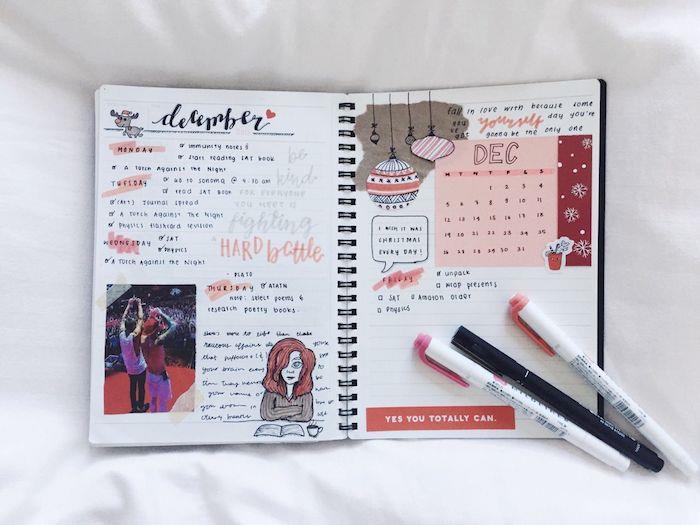 december
MONDAY
immunity notes
start reading SAT book
A Torch Against The Night
TUESDAY
Go to Sonoma @ 9:30 am
read SAT Book
(Art) Journal Spread
A Torch Against The Night
Physics flashcard revision
WEDNESDAY
SAT
Physics
A Torch Against The Night
be
kind
FOR EVERYONE
YOU MEET IS
fighting
A HARD battle
- PLATO
THURSDAY
ATATN
Note: select poems &
research poetry books.
there's more to life than
that
your brain
your
Fall in love with because some
yourself day you're
gonna be the only one
you've got
DEC
M T W T F S S
1 2 3 4
5 6 7 8 9 10 11
12 13 14 15 16 17 18
19 20 21 22 23 24 25
26 27 28 29 30 31
I WISH IT WAS
CHRISTMAS
EVERY DAY!
FRIDAY
unpack
SAT
Wrap presents
Amazon order
Physics
YES YOU TOTALLY CAN.